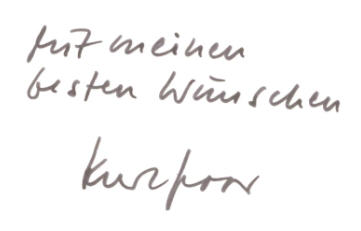 Mit meinen
besten Wünschen